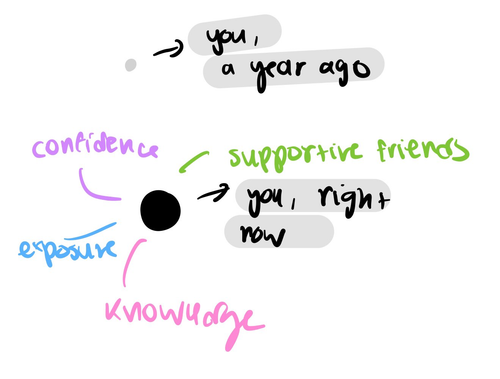 you,
a year ago
confidence
supportive friends
you, right
now
exposure
knowledge